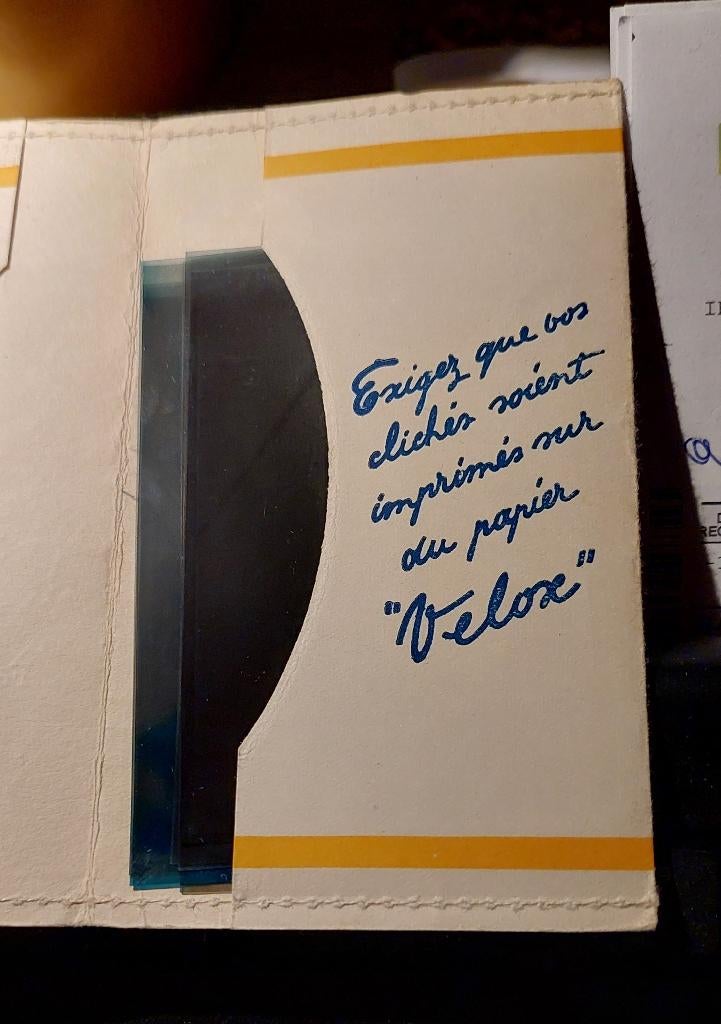 Exigez que vos
clichés soient
imprimés sur
du papier
"Velox"